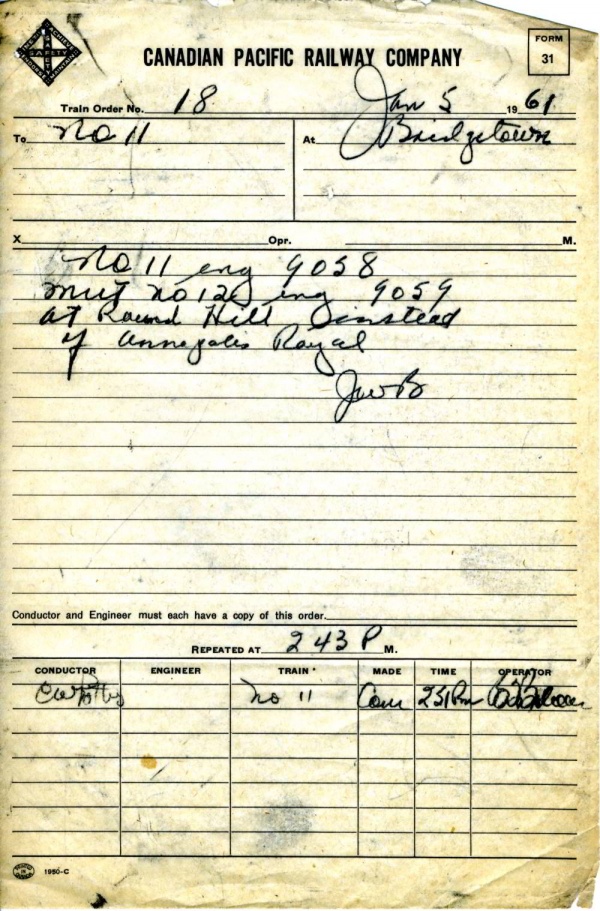 CANADIAN PACIFIC RAILWAY COMPANY
FORM 31
Train Order No. 18 Jan 5 1961
To No 11 At Bridgetown
X Opr. M.
No 11 eng 9058
meet no 12 eng 9059
at Round Hill instead
of Annapolis Royal
JWB
Conductor and Engineer must each have a copy of this order.
REPEATED AT 243 P M.
CONDUCTOR ENGINEER TRAIN MADE TIME OPERATOR
no 11 Com 251 Pm
1950-C